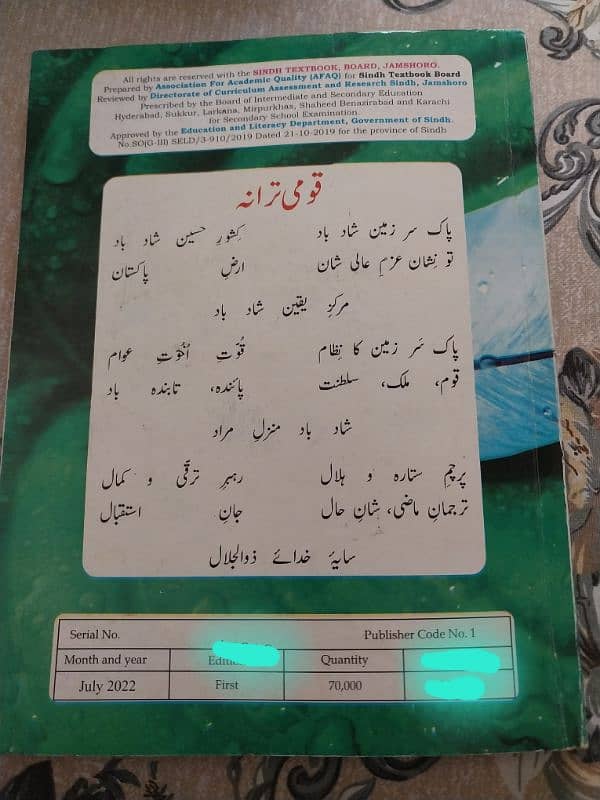 All rights are reserved with the SINDH TEXTBOOK, BOARD, JAMSHORO.
Prepared by Association For Academic Quality (AFAQ) for Sindh Textbook Board
Reviewed by Directorate of Curriculum Assessment and Research Sindh, Jamshoro
Prescribed by the Board of Intermediate and Secondary Education
Hyderabad, Sukkur, Larkana, Mirpurkhas, Shaheed Benazirabad and Karachi
for Secondary School Examination.
Approved by the Education and Literacy Department, Government of Sindh.
No.SO(G-III) SELD/3-910/2019 Dated 21-10-2019 for the province of Sindh
قومی ترانہ
پاک سر زمین شاد باد کِشورِ حسین شاد باد
تو نِشانِ عزمِ عالی شان ارضِ پاکستان
مرکزِ یقین شاد باد
پاک سَر زمین کا نِظام قُوّتِ اُخُوّتِ عوام
قوم، ملک، سلطنت پائندہ، تابندہ باد
شاد باد منزلِ مراد
پرچمِ ستارہ و ہلال رہبرِ ترقّی و کمال
ترجمانِ ماضی، شانِ حال جانِ استقبال
سایۂ خدائے ذوالجلال
Serial No. Publisher Code No. 1
Month and year Quantity
July 2022 First 70,000